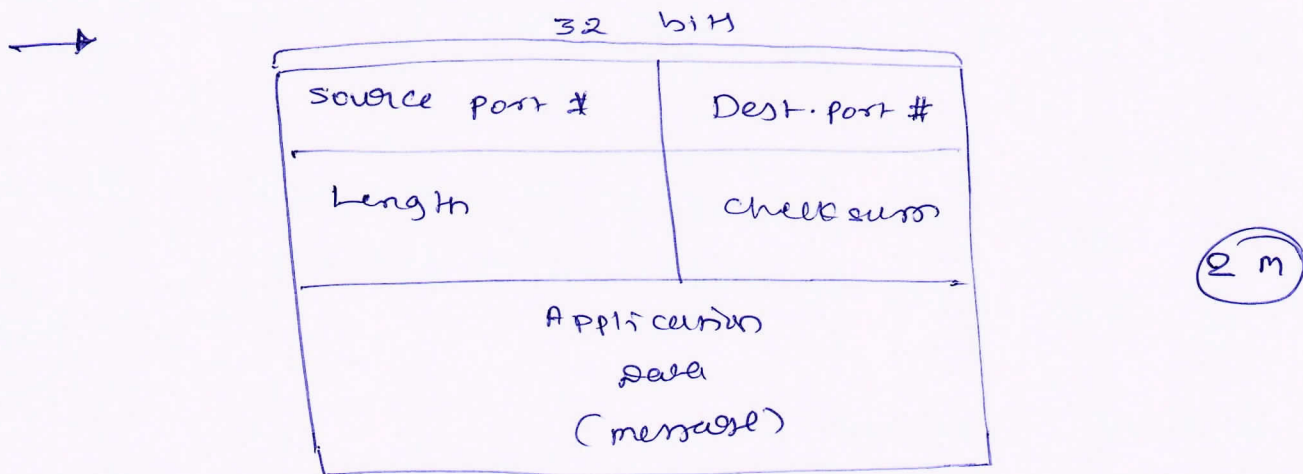 32 bits
Source port # Dest. port #
Length checksum
2 m
Application
Data
(message)